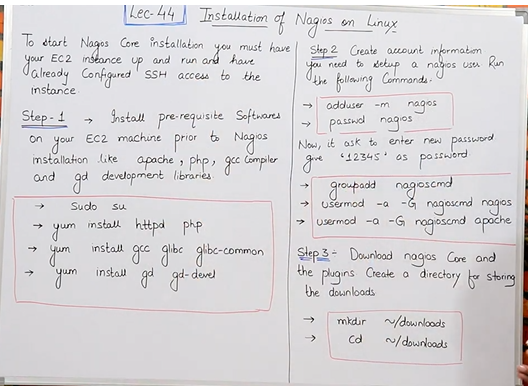 Lec-44 Installation of Nagios on Linux
To start Nagios Core installation you must have
your EC2 instance up and run and have
already Configured SSH access to the
instance
Step-1 → Install pre-requisite Softwares
on your EC2 machine prior to Nagios
installation like apache, php, gcc Compiler
and gd development libraries.
→ Sudo su
→ yum install httpd php
→ yum install gcc glibc glibc-common
→ yum install gd gd-devel
Step 2 Create account information
you need to setup a nagios user Run
the following Commands.
→ adduser -m nagios
→ passwd nagios
Now, it ask to enter new password
give '12345' as password
→ groupadd nagioscmd
→ usermod -a -G nagioscmd nagios
→ usermod -a -G nagioscmd apache
Step 3 - Download nagios Core and
the plugins Create a directory for storing
the downloads
→ mkdir ~/downloads
→ cd ~/downloads